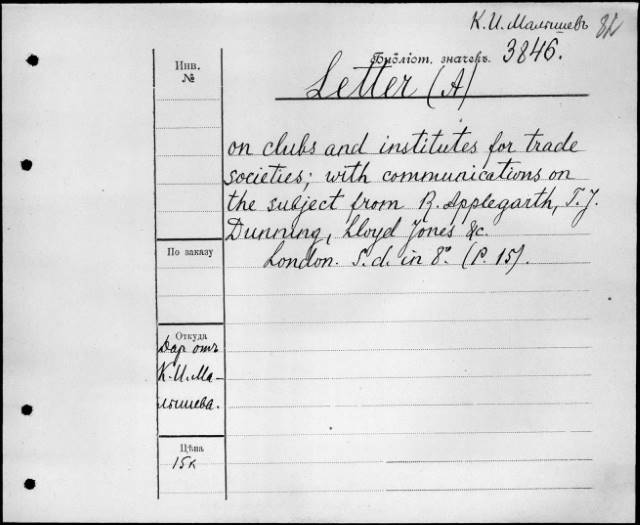 К.И.Малышевъ
Библіот. значекъ. 3846.
Инв.
№
Letter (A)
on clubs and institutes for trade
societies; with communications on
the subject from R. Applegarth, T. J.
Dunning, Lloyd Jones &c.
London. S. d. in 8º. (P. 15).
По заказу
Откуда
Даръ отъ
К.И.Ма-
лышева.
Цѣна
15к